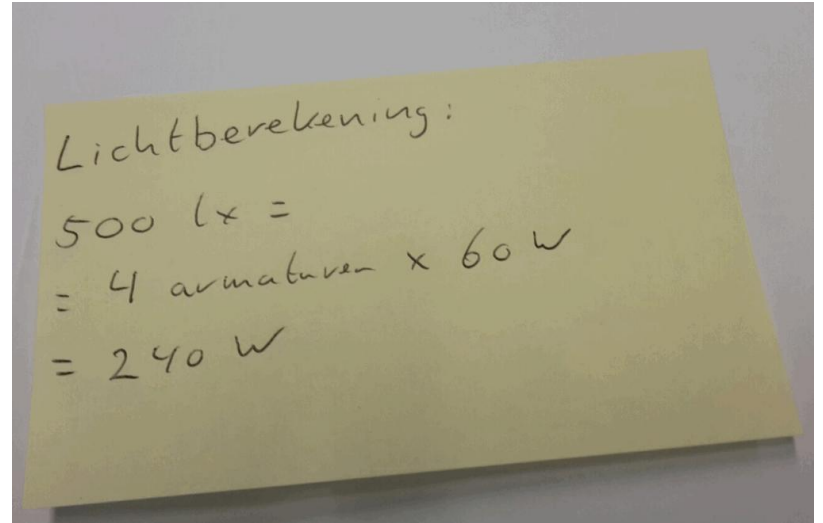 Lichtberekening:
500 lx =
= 4 armaturen x 60 W
= 240 W